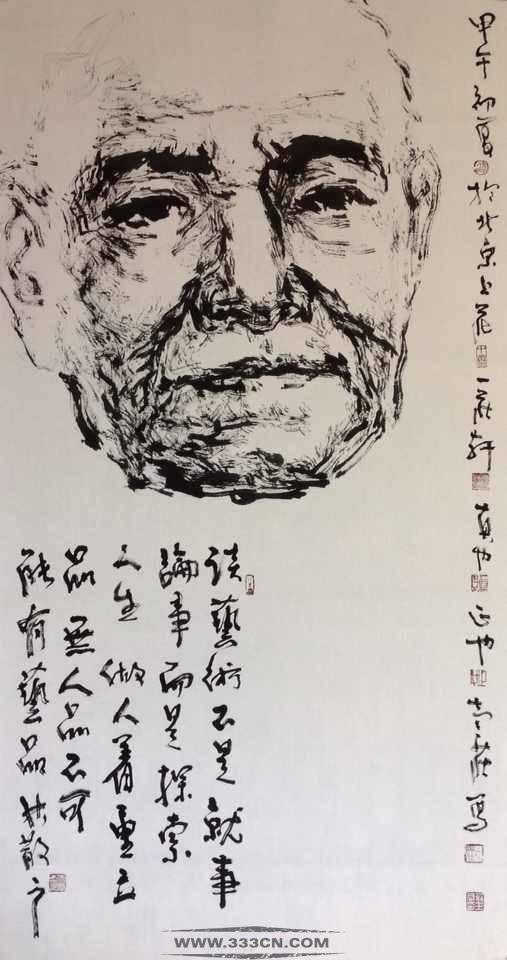 甲午初夏於北京上苑一軒
談藝術不是就事
論事而是探索
人生做人着重立
品無人品不可
能有藝品林散之
WWW.333CN.COM